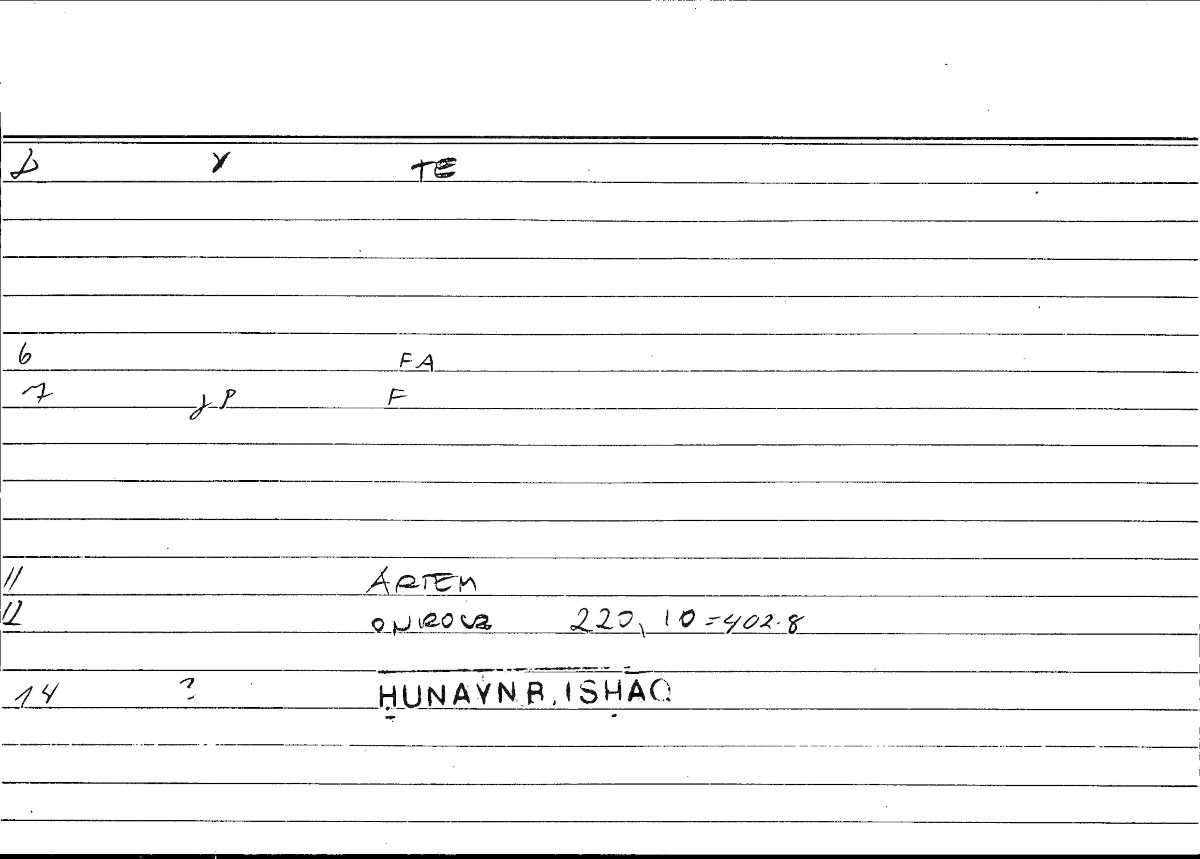 D γ TE
6 FA
7 γP F
11 ARTEM
12 ONIROCR 220, 10 = 402.8
14 ? ḤUNAYN B. ISḤĀQ